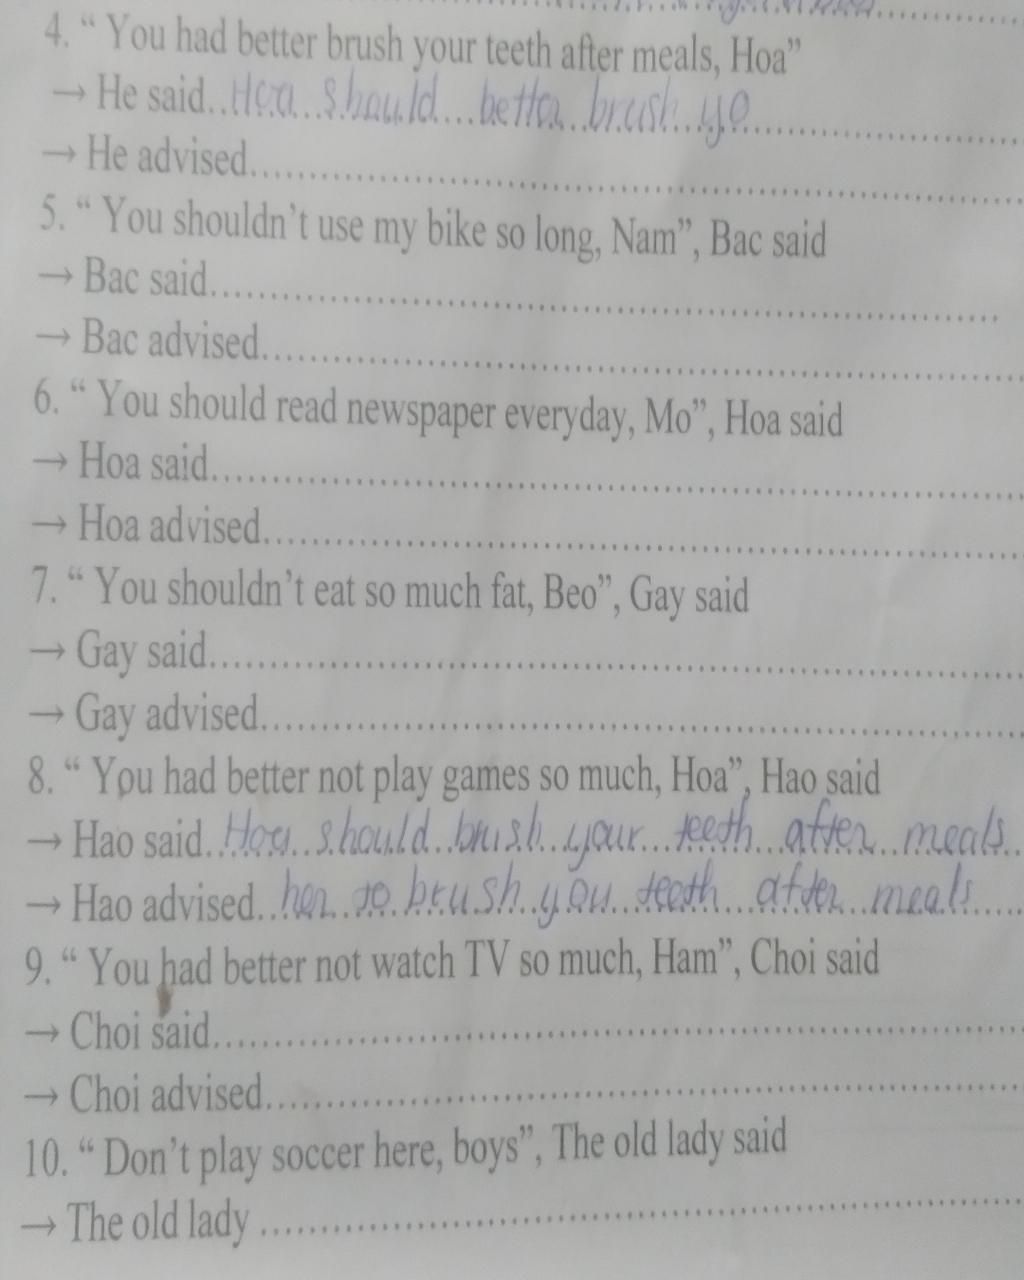 4. “ You had better brush your teeth after meals, Hoa”
→ He said..Hoa...should...better..brush...yo..........
→ He advised..........
5. “ You shouldn’t use my bike so long, Nam”, Bac said
→ Bac said..........
→ Bac advised..........
6. “ You should read newspaper everyday, Mo”, Hoa said
→ Hoa said..........
→ Hoa advised..........
7. “ You shouldn’t eat so much fat, Beo”, Gay said
→ Gay said..........
→ Gay advised..........
8. “ You had better not play games so much, Hoa”, Hao said
→ Hao said..Hoa..should..brush..your...teeth...after..meals..
→ Hao advised..her..to.brush.you..teeth...after..meals.....
9. “ You had better not watch TV so much, Ham”, Choi said
→ Choi said..........
→ Choi advised..........
10. “ Don’t play soccer here, boys”, The old lady said
→ The old lady ..........